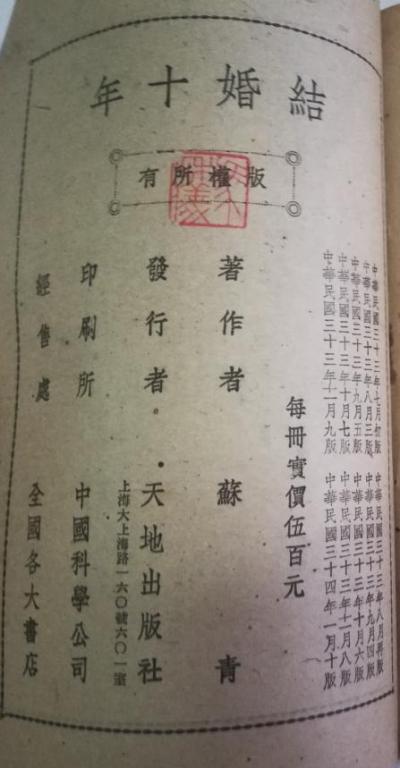 結婚十年
版權所有
中華民國三十三年七月初版 中華民國三十三年八月再版
中華民國三十三年八月三版 中華民國三十三年九月四版
中華民國三十三年九月五版 中華民國三十三年十月六版
中華民國三十三年十月七版 中華民國三十三年十一月八版
中華民國三十三年十一月九版 中華民國三十四年一月十版
每冊實價伍百元
著作者 蘇青
發行者 · 天地出版社
上海大上海路一六〇號六〇一室
印刷所 中國科學公司
經售處 全國各大書店